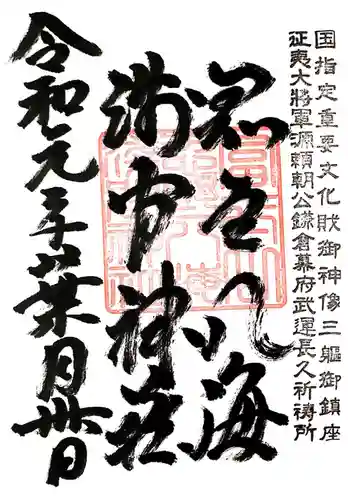 国指定重要文化財御神像三軀御鎮座
征夷大將軍源頼朝公鎌倉幕府武運長久祈禱所
忍之八海
浅間神社
令和元年葉月卅日